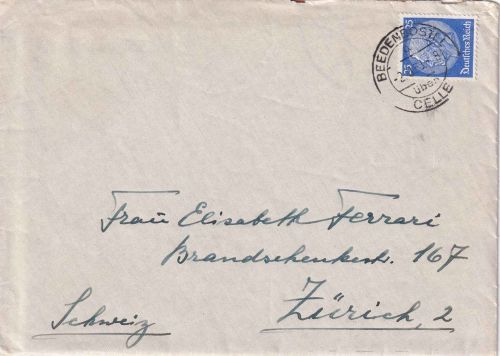 25 25
Deutsches Reich
BEEDENBOSTEL
über
CELLE
Frau Elisabeth Ferrari
Brandschenkestr. 167
Zürich, 2
Schweiz